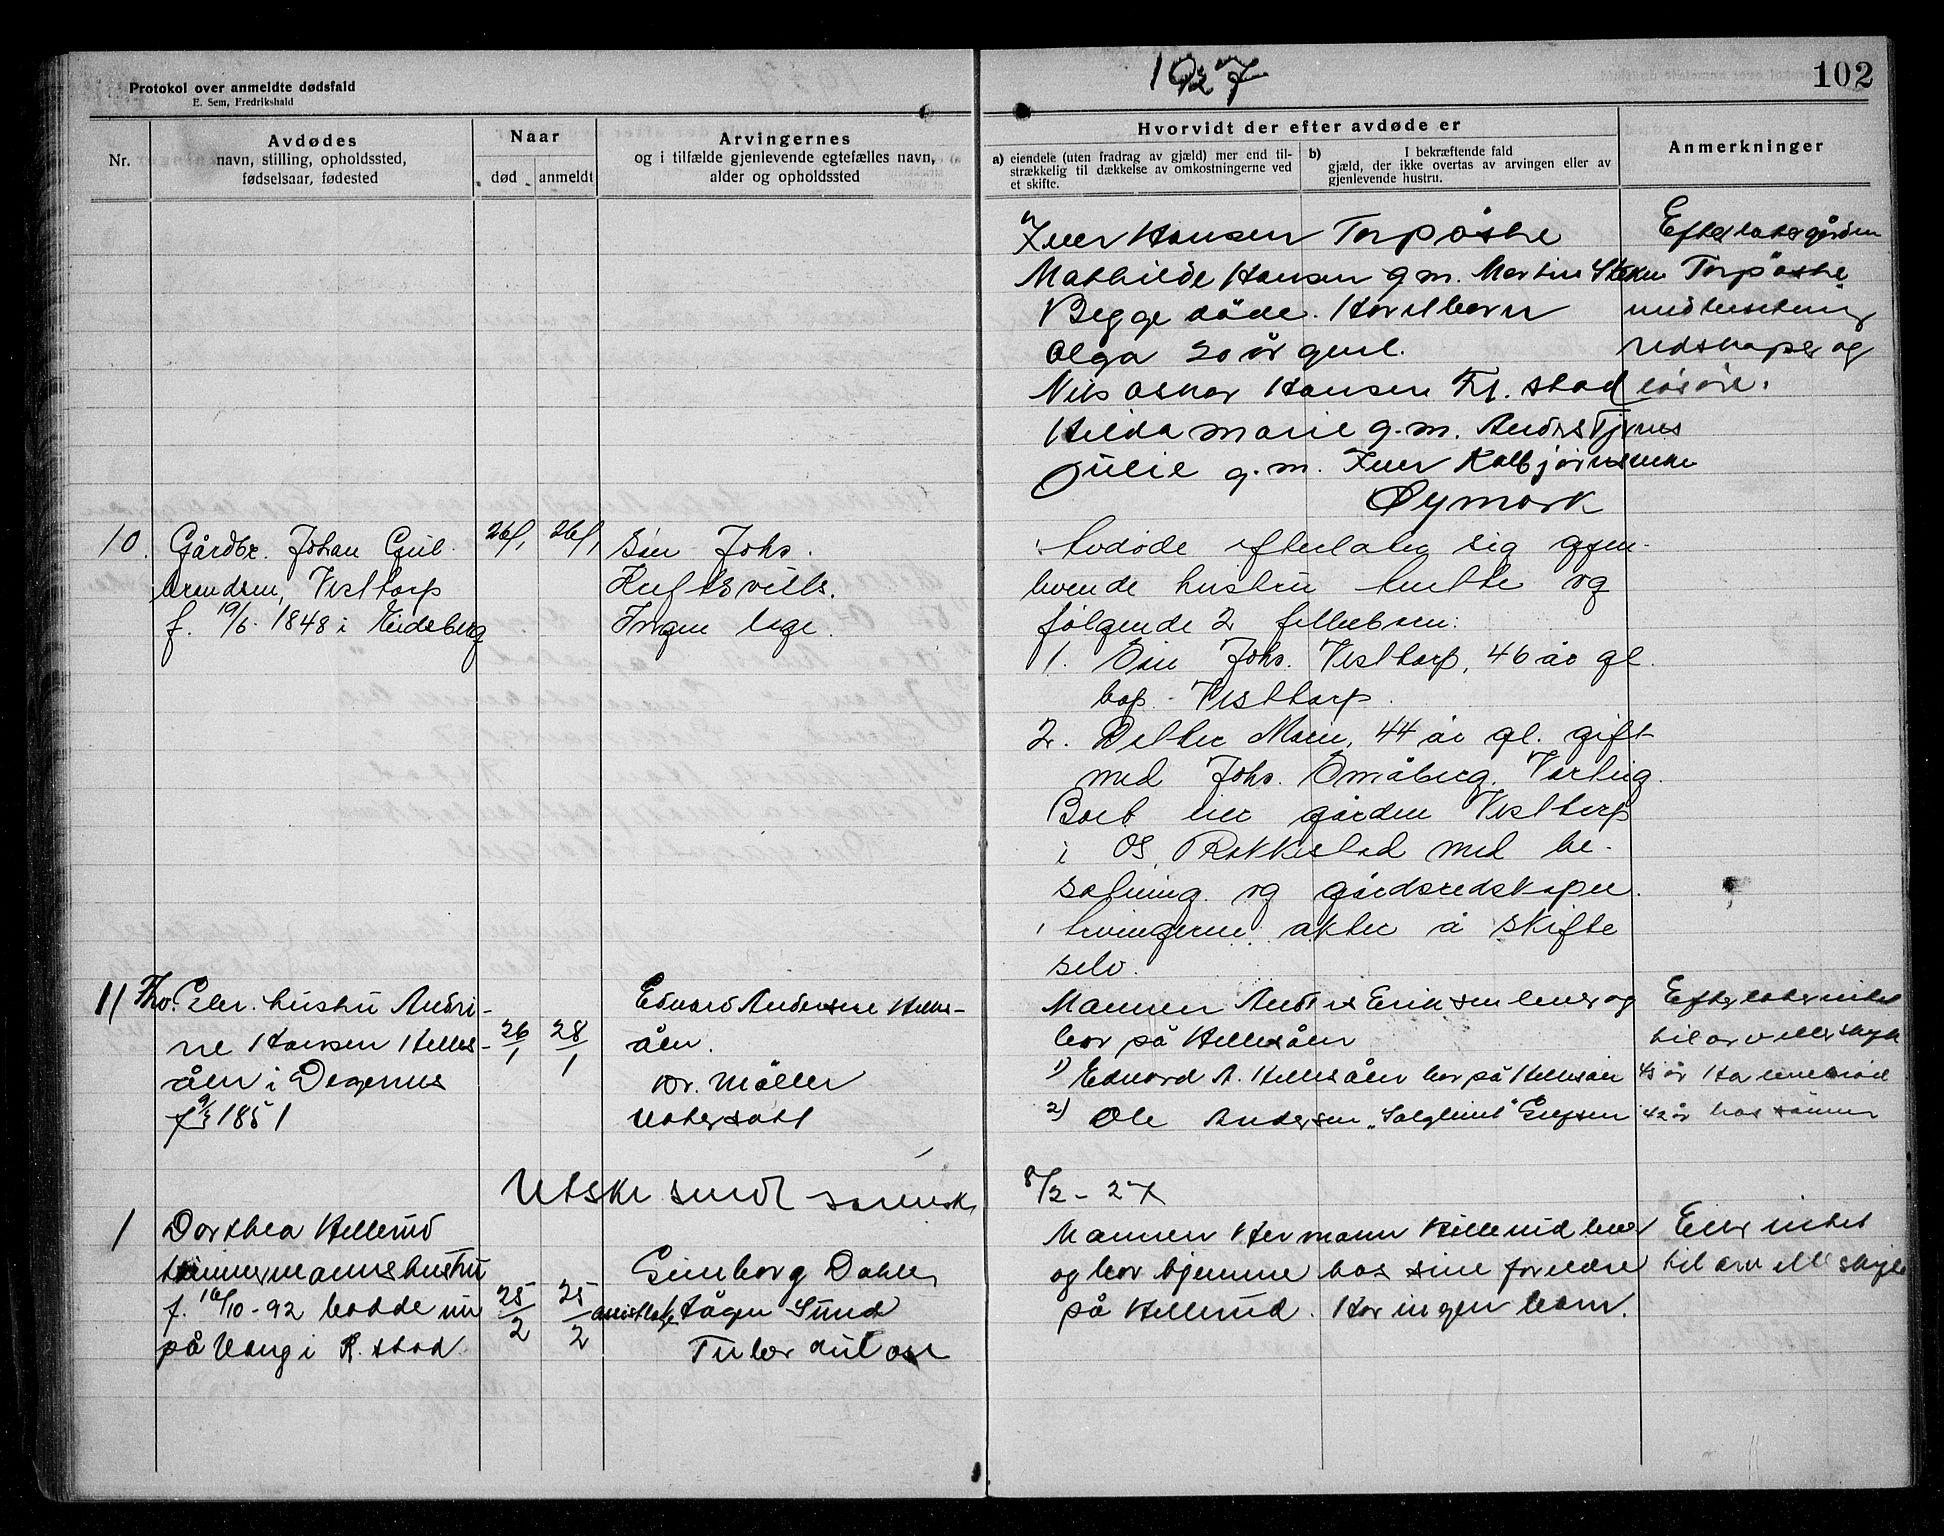 1927
102
Protokol over anmeldte dødsfald
E. Sem, Fredrikshald
Nr.
Avdødes
navn, stilling, opholdssted,
fødselsaar, fødested
Naar
død
anmeldt
Arvingernes
og i tilfælde gjenlevende egtefælles navn,
alder og opholdssted
Hvorvidt der efter avdøde er
a) eiendele (uten fradrag av gjæld) mer end til-
strækkelig til dækkelse av omkostningerne ved
et skifte.
b) I bekræftende fald
gjæld, der ikke overtas av arvingen eller av
gjenlevende hustru.
Anmerkninger
Iver Hansen Torpøstre
Mathilde Hansen g.m. Martin
Begge døde. Har 1 barn
Olga 20 år gml.
Nils Oskar Hansen Fr. stad
Hilda Marie g.m. Anders Tjernes
Julie g.m. Iver Kolbjørnsvike
Øymark
Efterlater gården
Torpøstre
med besetning
redskaper og
løsøre.
10.
Gårdbr. Johan Gul-
brandsen, Vesttorp
f. 19/6. 1848 i Eidsberg
26/1
26/1
Søn Johs.
Ingen lege.
Avdøde efterlater sig gjen-
levende hustru og
følgende 2 fellesbarn:
1. Søn Johs. Vesttorp, 46 år gl.
bop. Vesttorp.
2. Datter Marie, 44 år gl. gift
med Johs. Småberg, Varteig.
Boet eier gården Vesttorp
i Os, Rakkestad med be-
setning og gårdsredskaper.
Arvingerne akter å skifte
selv.
11
hustru Andri-
ne Hansen Helles-
åen i Degernes
f 9/3 1851
26/1
28/1
Edvard Andersen Helles-
åen.
Dr. Møller
Mannen Anders Eriksen lever og
bor på Hellesåen
1) Edvard A. Hellesåen bor på Hellesåen 45 år
2) Ole Andersen „Solglimt" Grefsen 42 år
Efterlater intet
til arv eller skyld
Ha levebrød
hos sønnen
Utskr sendt
8/2 - 27
1
Dorthea Hellerud
tømmermannshustru
f. 16/10 - 92 bodde nu
på Vang i R. stad
25/2
25/2
Gunborg Dahler
Sund
Mannen Hermann Hellerud lever
og bor hjemme hos sine foreldre
på Hellerud. Har ingen barn.
Eier intet
til arv ell skyld